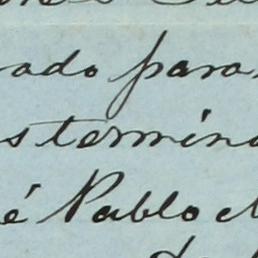 ado para
s termino
é Pablo M